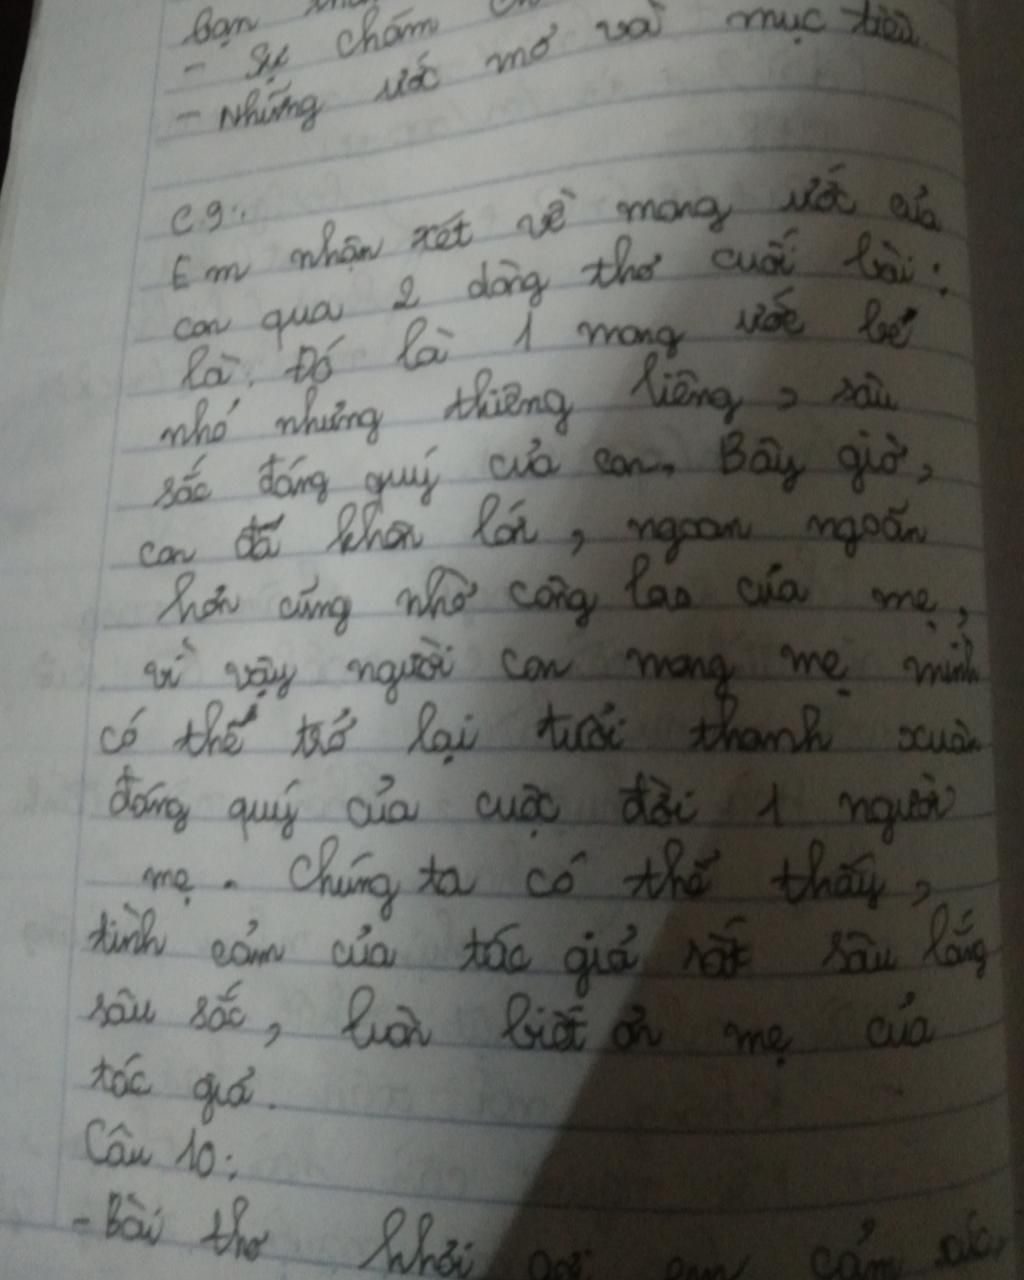 bạn
- Sự chăm
- Những ước mơ và mục tiêu.
C9:
Em nhận xét về mong ước của
con qua 2 dòng thơ cuối bài:
là: Đó là 1 mong ước bé
nhỏ nhưng thiêng liêng, sâu
sắc đáng quý của con. Bây giờ,
con đã khôn lớn, ngoan ngoãn
hơn cũng nhờ công lao của mẹ,
vì vậy người con mong mẹ mình
có thể trở lại tuổi thanh xuân
đáng quý của cuộc đời 1 người
mẹ. Chúng ta có thể thấy,
tình cảm của tác giả rất sâu lắng
sâu sắc, luôn biết ơn mẹ của
tác giả.
Câu 10:
- Bài thơ khơi gợi em cảm xúc